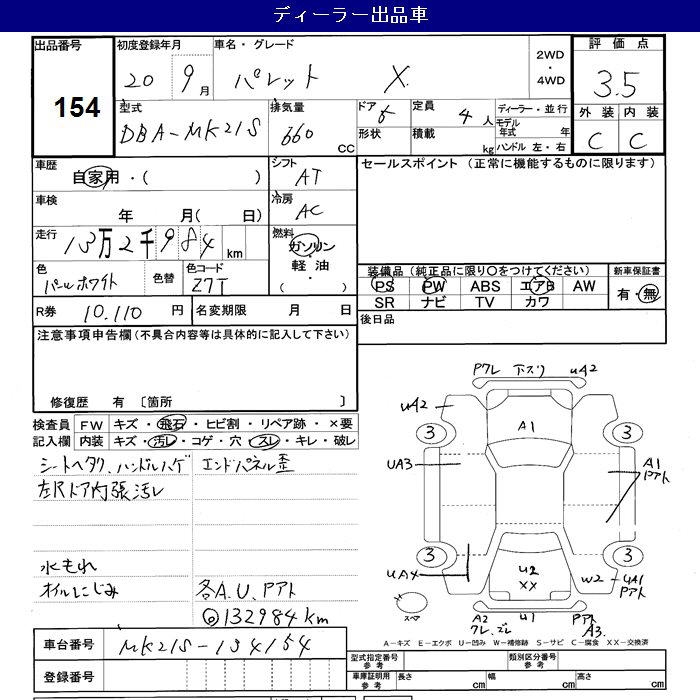 ディーラー出品車
出品番号 154
初度登録年月 20 9月
車名・グレード パレット X
2WD・4WD
評価点 3.5
外装 C 内装 C
型式 DBA-MK21S
排気量 660 CC
ドア 5
形状
定員 4人
積載 kg
ディーラー・並行
モデル年式 年
ハンドル 左・右
車歴 自家用・( )
シフト AT
セールスポイント (正常に機能するものに限ります)
車検 年 月( 日)
冷房 AC
走行 13万2千984km
燃料 ガソリン・軽油・( )
色 パールホワイト
色替
色コード Z7T
装備品(純正品に限り○をつけてください)
PS PW ABS エアB AW
SR ナビ TV カワ
新車保証書 有・無
R券 10.110円
名変期限 月 日
後日品
注意事項申告欄(不具合内容等は具体的に記入して下さい)
修復歴 有 〔箇所 〕
検査員記入欄
FW キズ・飛石・ヒビ割・リペア跡・×要
内装 キズ・汚レ・コゲ・穴・スレ・キレ・破レ
シートヘタク、ハンドルハゲ エンドパネル歪
左Rドア内張汚レ
水もれ
オイルにじみ 各A.U.Pアト
◎132984km
Pクレ 下スリ UA2
UA2
3 A1 3
UA3
A1 Pアト
3 3
UA4 U2 XX W2 UA1 Pアト
スペア
A2 クレ、ズレ U1 Pアト A3.
A-キズ E-エクボ U-凹み W-補修跡 S-サビ C-腐食 XX-交換済
車台番号 MK21S-134154
登録番号
型式指定番号 参考
類別区分番号 参考
車庫証明用 参考 長さ cm 幅 cm 高さ cm